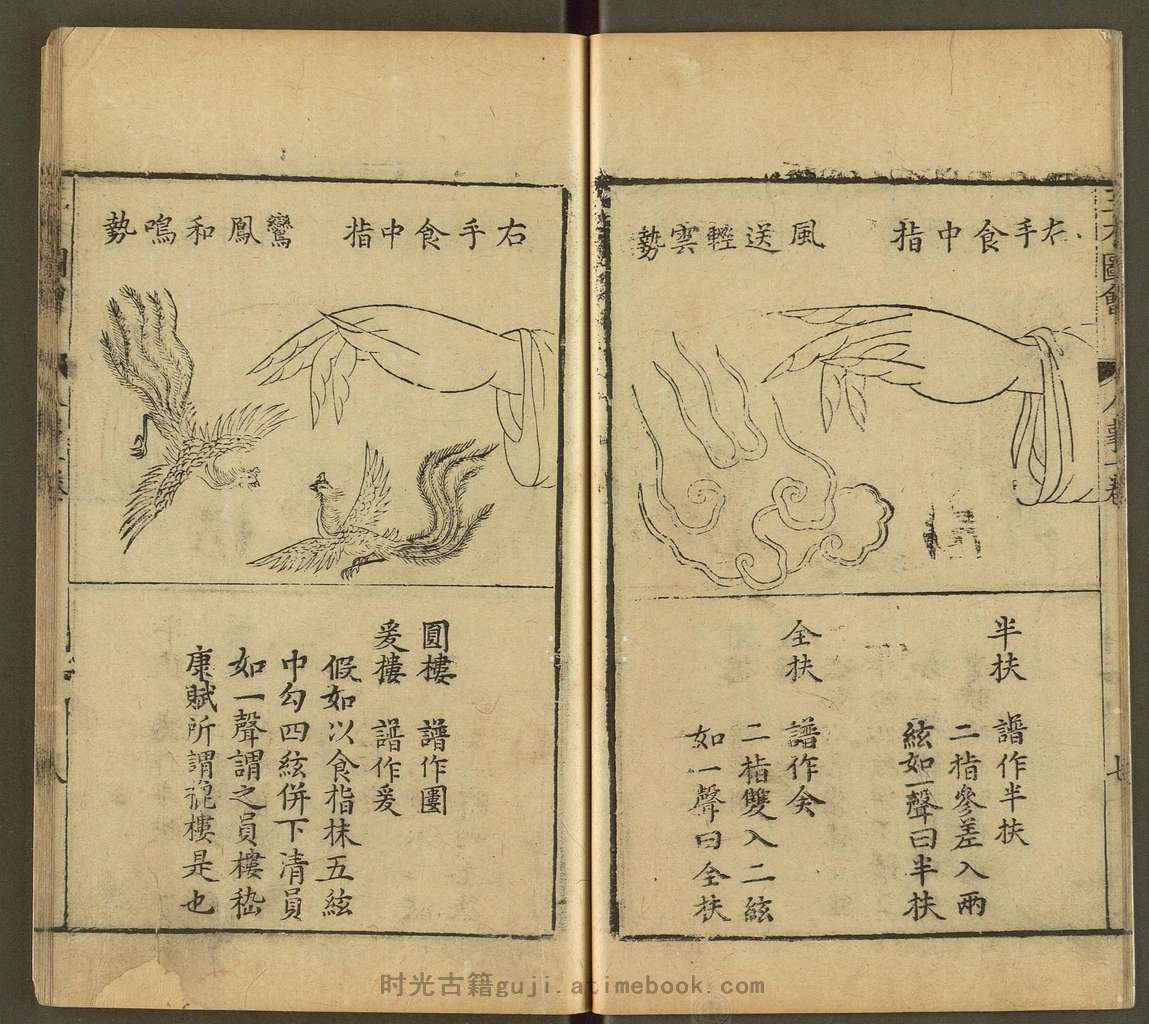 三才圖會
人事一卷
七
右手食中指
風送輕雲勢
半扶 譜作半扶
二指參差入兩
絃如一聲曰半扶
全扶 譜作𡗗
二指雙入二絃
如一聲曰全扶
右手食中指
鸞鳳和鳴勢
圓摟 譜作團
爰摟 譜作爰
假如以食指抹五絃
中勾四絃併下清員
如一聲謂之員摟嵇
康賦所謂摟是也
时光古籍guji.atimebook.com